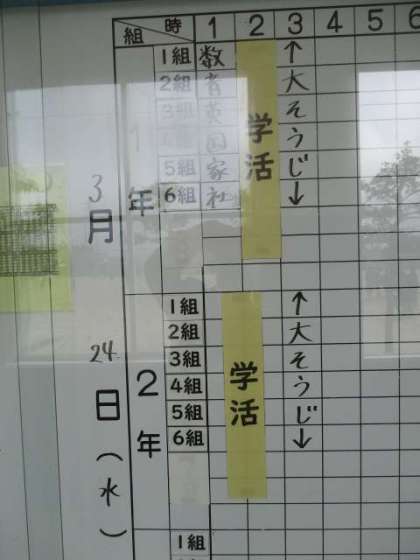 組 時 1 2 3 4 5 6
3月24日(水)
1年
1組 数
2組
3組 英
国
5組 家
6組 社
学活
↑大そうじ↓
2年
1組
2組
3組
4組
5組
6組
学活
↑大そうじ↓
1組